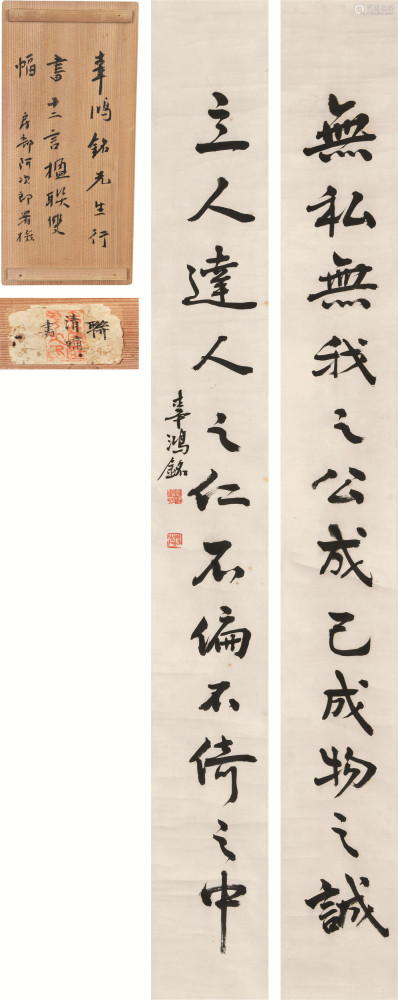 無私無我之公成己成物之誠
立人達人之仁不偏不倚之中
辜鴻銘
辜鴻銘先生行
書十二言楹聯雙
幅
部阿次郎署檢
聯
清
書